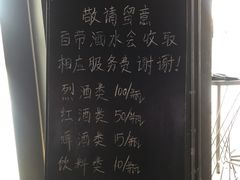 敬请留意
自带酒水会收取
相应服务费 谢谢!
烈酒类 100/瓶
红酒类 50/瓶
啤酒类 15/瓶
饮料类 10/瓶